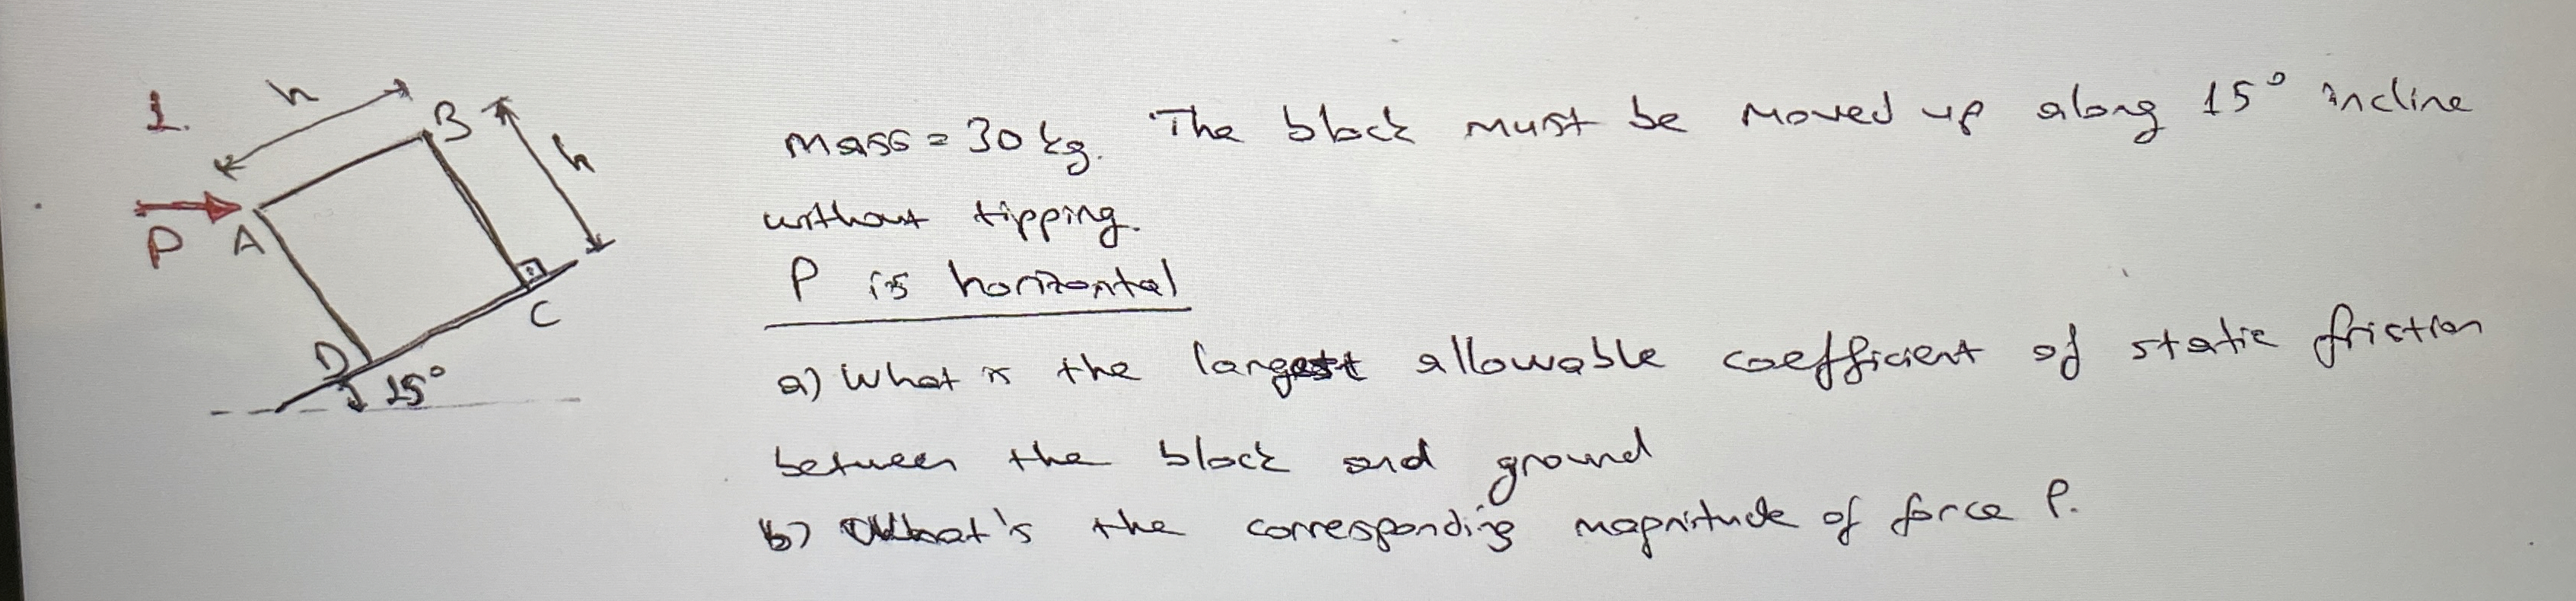 1.
h
B
h
mass = 30 kg. The block must be moved up along 15° incline
P
A
without tipping.
P is horizontal
C
D
15°
a) What is the largest allowable coefficient of static friction
between the block and ground
b) What's the corresponding magnitude of force P.